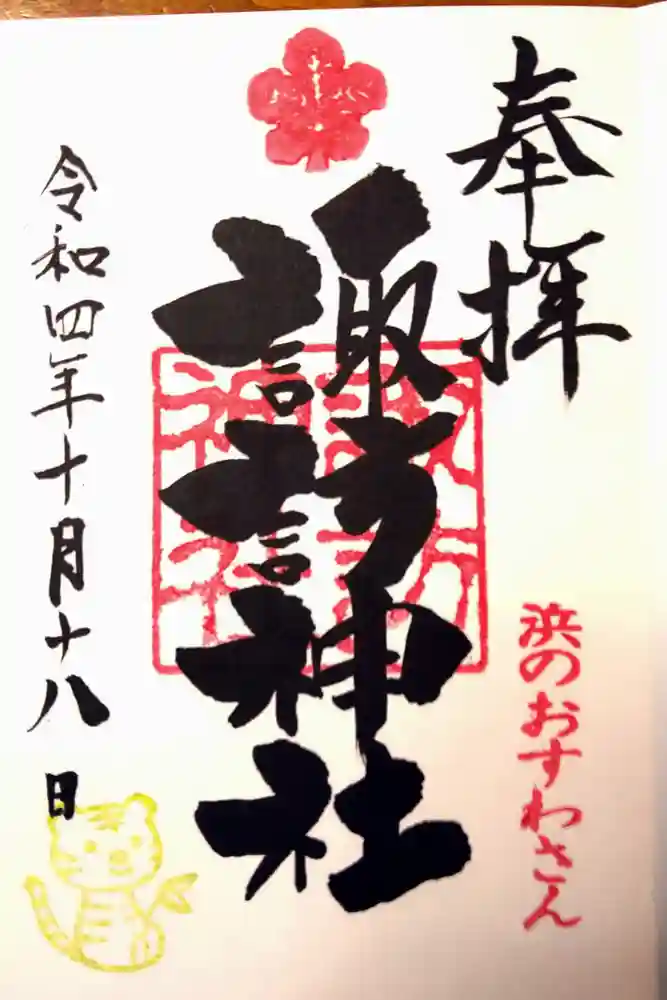 奉拝
浜のおすわさん
諏訪神社
諏訪
神社
令和四年十月十八日